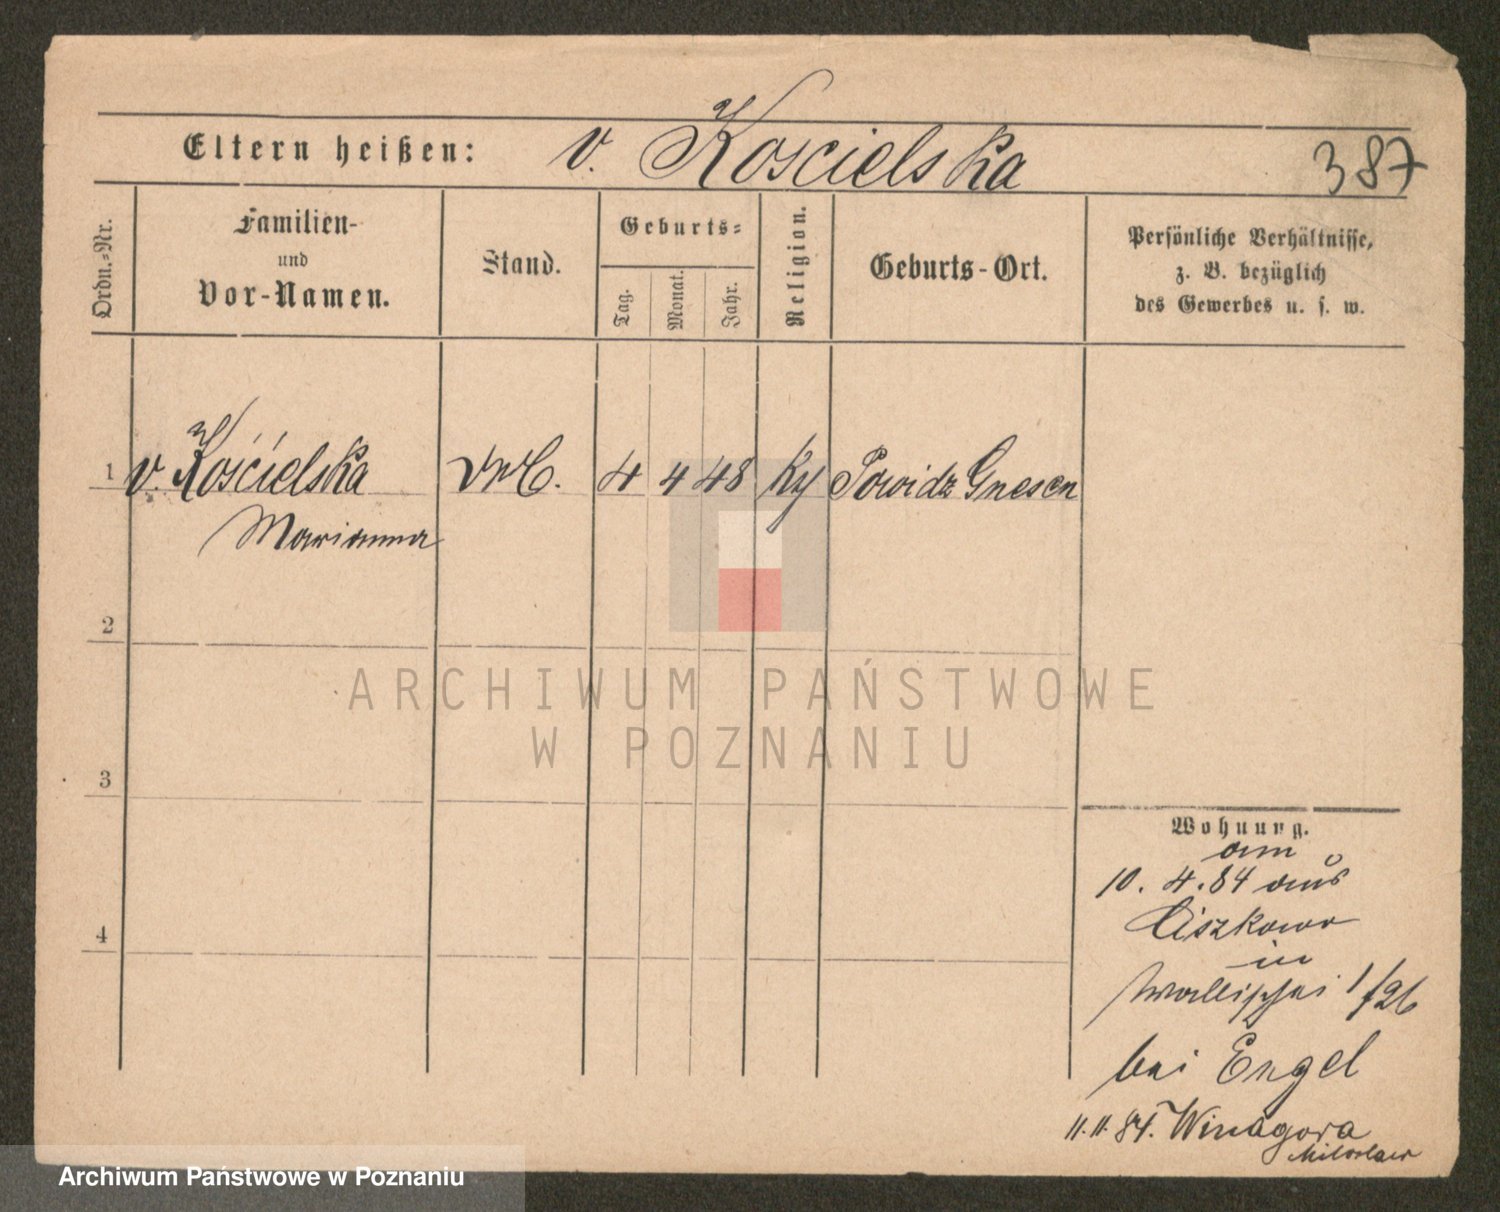 Eltern heißen: v. Koscielska 387
Ordn.-Nr.
Familien-
und
Vor-Namen.
Stand.
Geburts-
Tag. Monat. Jahr.
Religion.
Geburts-Ort.
Persönliche Verhältnisse,
z. B. bezüglich
des Gewerbes u. s. w.
1 v. Kościelska 4 4 48 Powidz Gnesen
Marianna
2
3
4
Wohnung.
am
10. 4. 84 aus
Ciszkowo
in
Wallischei 1/26
bei Engel
11. 11. 84. Winagora
Miloslaw
ARCHIWUM PAŃSTWOWE
W POZNANIU
Archiwum Państwowe w Poznaniu